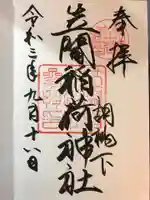 奉拝
胡桃下
笠間稲荷神社
令和三年九月十八日